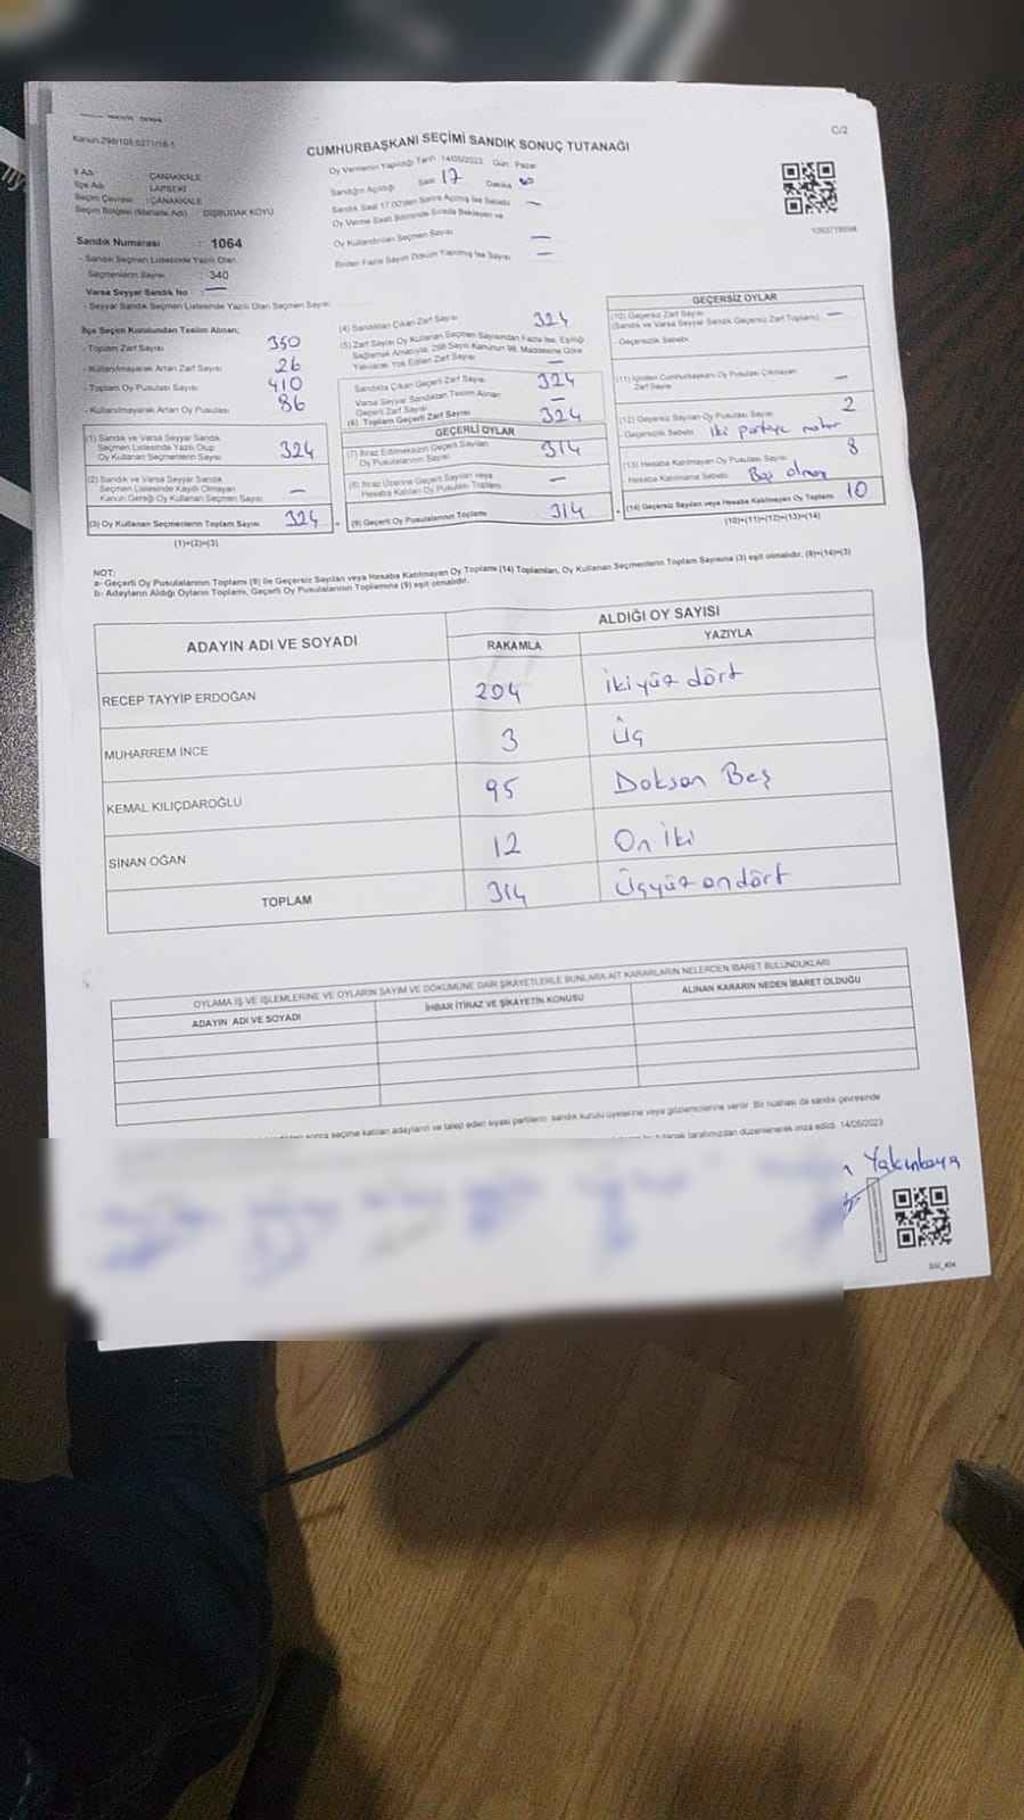 C/2
Kanun:298/105,6271/16-1
CUMHURBAŞKANI SEÇİMİ SANDIK SONUÇ TUTANAĞI
İl Adı : ÇANAKKALE
İlçe Adı : LAPSEKİ
Seçim Çevresi : ÇANAKKALE
Seçim Bölgesi (Mahalle Adı) : DIŞBUDAK KÖYÜ
Oy Vermenin Yapıldığı Tarih 14/05/2023 Gün: Pazar
Sandığın Açıldığı Saat 17 Dakika
Sandık Saat 17.00'den Sonra Açılmış İse Sebebi —
Oy Verme Saati Bitiminde Sırada Bekleyen ve
Oy Kullandırılan Seçmen Sayısı —
Birden Fazla Sayım Döküm Yapılmış İse Sayısı —
Sandık Numarası : 1064
Sandık Seçmen Listesinde Yazılı Olan
Seçmenlerin Sayısı : 340
Varsa Seyyar Sandık No : —
- Seyyar Sandık Seçmen Listesinde Yazılı Olan Seçmen Sayısı
İlçe Seçim Kurulundan Teslim Alınan;
- Toplam Zarf Sayısı 350
- Kullanılmayarak Artan Zarf Sayısı 26
- Toplam Oy Pusulası Sayısı 410
- Kullanılmayarak Artan Oy Pusulası 86
(1) Sandık ve Varsa Seyyar Sandık
Seçmen Listesinde Yazılı Olup
Oy Kullanan Seçmenlerin Sayısı 324
(2) Sandık ve Varsa Seyyar Sandık
Seçmen Listesinde Kaydı Olmayan
Kanun Gereği Oy Kullanan Seçmen Sayısı —
(3) Oy Kullanan Seçmenlerin Toplam Sayısı 324
(1)+(2)=(3)
(4) Sandıktan Çıkan Zarf Sayısı 324
(5) Zarf Sayısı Oy Kullanan Seçmen Sayısından Fazla İse, Eşitliği
Sağlamak Amacıyla, 298 Sayılı Kanunun 98. Maddesine Göre
Yakılarak Yok Edilen Zarf Sayısı —
Sandıkta Çıkan Geçerli Zarf Sayısı 324
Varsa Seyyar Sandıktan Teslim Alınan
Geçerli Zarf Sayısı —
(6) Toplam Geçerli Zarf Sayısı 324
GEÇERLİ OYLAR
(7) İtiraz Edilmeksizin Geçerli Sayılan
Oy Pusulalarının Sayısı 314
(8) İtiraz Üzerine Geçerli Sayılan veya
Hesaba Katılan Oy Pusulası Toplamı —
(9) Geçerli Oy Pusulalarının Toplamı 314
GEÇERSİZ OYLAR
(10) Geçersiz Zarf Sayısı
(Sandık ve Varsa Seyyar Sandık Geçersiz Zarf Toplamı) —
Geçersizlik Sebebi
(11) İçinden Cumhurbaşkanı Oy Pusulası Çıkmayan
Zarf Sayısı —
(12) Geçersiz Sayılan Oy Pusulası Sayısı 2
Geçersizlik Sebebi iki partiye
(13) Hesaba Katılmayan Oy Pusulası Sayısı 8
Hesaba Katılmama Sebebi Boş olması
(14) Geçersiz Sayılan veya Hesaba Katılmayan Oy Toplamı 10
(10)+(11)+(12)+(13)=(14)
NOT:
a- Geçerli Oy Pusulalarının Toplamı (9) ile Geçersiz Sayılan veya Hesaba Katılmayan Oy Toplamı (14) Toplamları, Oy Kullanan Seçmenlerin Toplam Sayısına (3) eşit olmalıdır. (9)+(14)=(3)
b- Adayların Aldığı Oyların Toplamı, Geçerli Oy Pusulalarının Toplamına (9) eşit olmalıdır.
ADAYIN ADI VE SOYADI
ALDIĞI OY SAYISI
RAKAMLA YAZIYLA
RECEP TAYYİP ERDOĞAN 204 ikiyüz dört
MUHARREM İNCE 3 Üç
KEMAL KILIÇDAROĞLU 95 Doksan Beş
SİNAN OĞAN 12 On iki
TOPLAM 314 Üçyüz ondört
OYLAMA İŞ VE İŞLEMLERİNE VE OYLARIN SAYIM VE DÖKÜMÜNE DAİR ŞİKAYETLERLE BUNLARA AİT KARARLARIN NELERDEN İBARET BULUNDUKLARI
ADAYIN ADI VE SOYADI İHBAR İTİRAZ VE ŞİKAYETİN KONUSU ALINAN KARARIN NEDEN İBARET OLDUĞU
sonra seçime katılan adayların ve talep eden siyasi partilerin sandık kurulu üyelerine veya gözlemcilerine verilir. Bir nüshası da sandık çevresinde
tarafımızdan düzenlenerek imza edildi. 14/05/2023
Yakınkaya